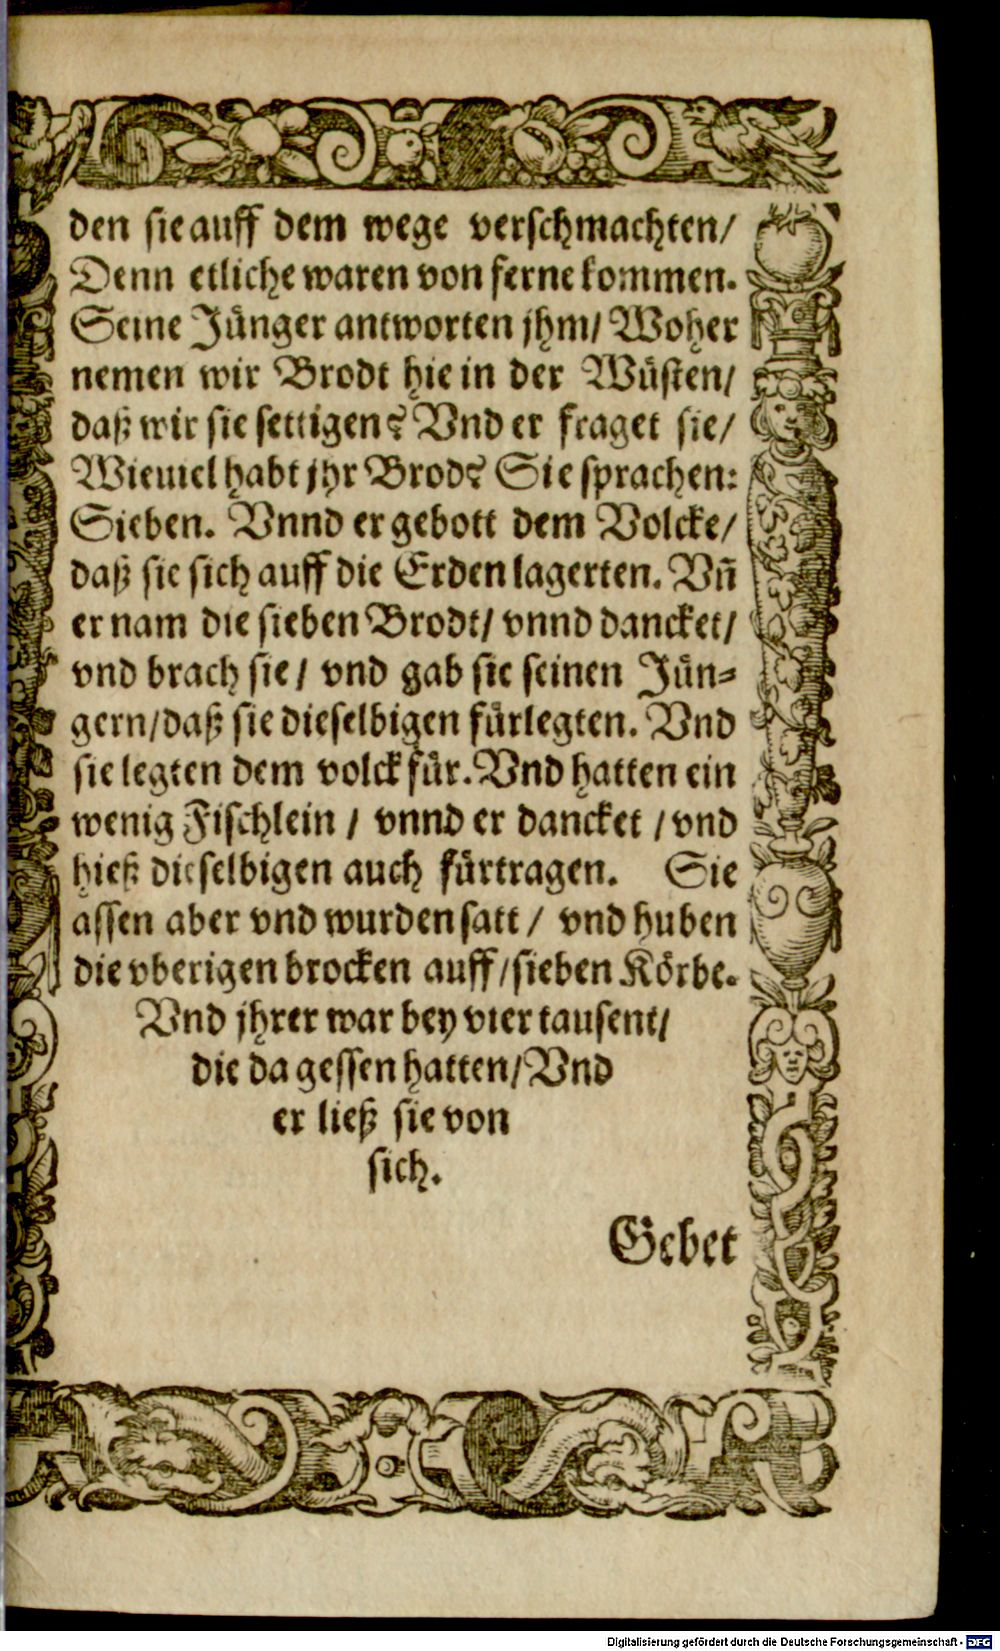 den sie auff dem wege verschmachten/
Denn etliche waren von ferne kommen.
Seine Jünger antworten jhm/ Woher
nemen wir Brodt hie in der Wüsten/
daß wir sie settigen? Vnd er fraget sie/
Wieuiel habt jhr Brod? Sie sprachen:
Sieben. Vnnd er gebott dem Volcke/
daß sie sich auff die Erden lagerten. Vñ
er nam die sieben Brodt/ vnnd dancket/
vnd brach sie/ vnd gab sie seinen Jün-
gern/ daß sie dieselbigen fürlegten. Vnd
sie legten dem volck für. Vnd hatten ein
wenig Fischlein / vnnd er dancket / vnd
hieß dieselbigen auch fürtragen. Sie
assen aber vnd wurden satt / vnd huben
die vberigen brocken auff / sieben Körbe.
Vnd jhrer war bey vier tausent/
die da gessen hatten/ Vnd
er ließ sie von
sich.
Gebet
Digitalisierung gefördert durch die Deutsche Forschungsgemeinschaft - DFG